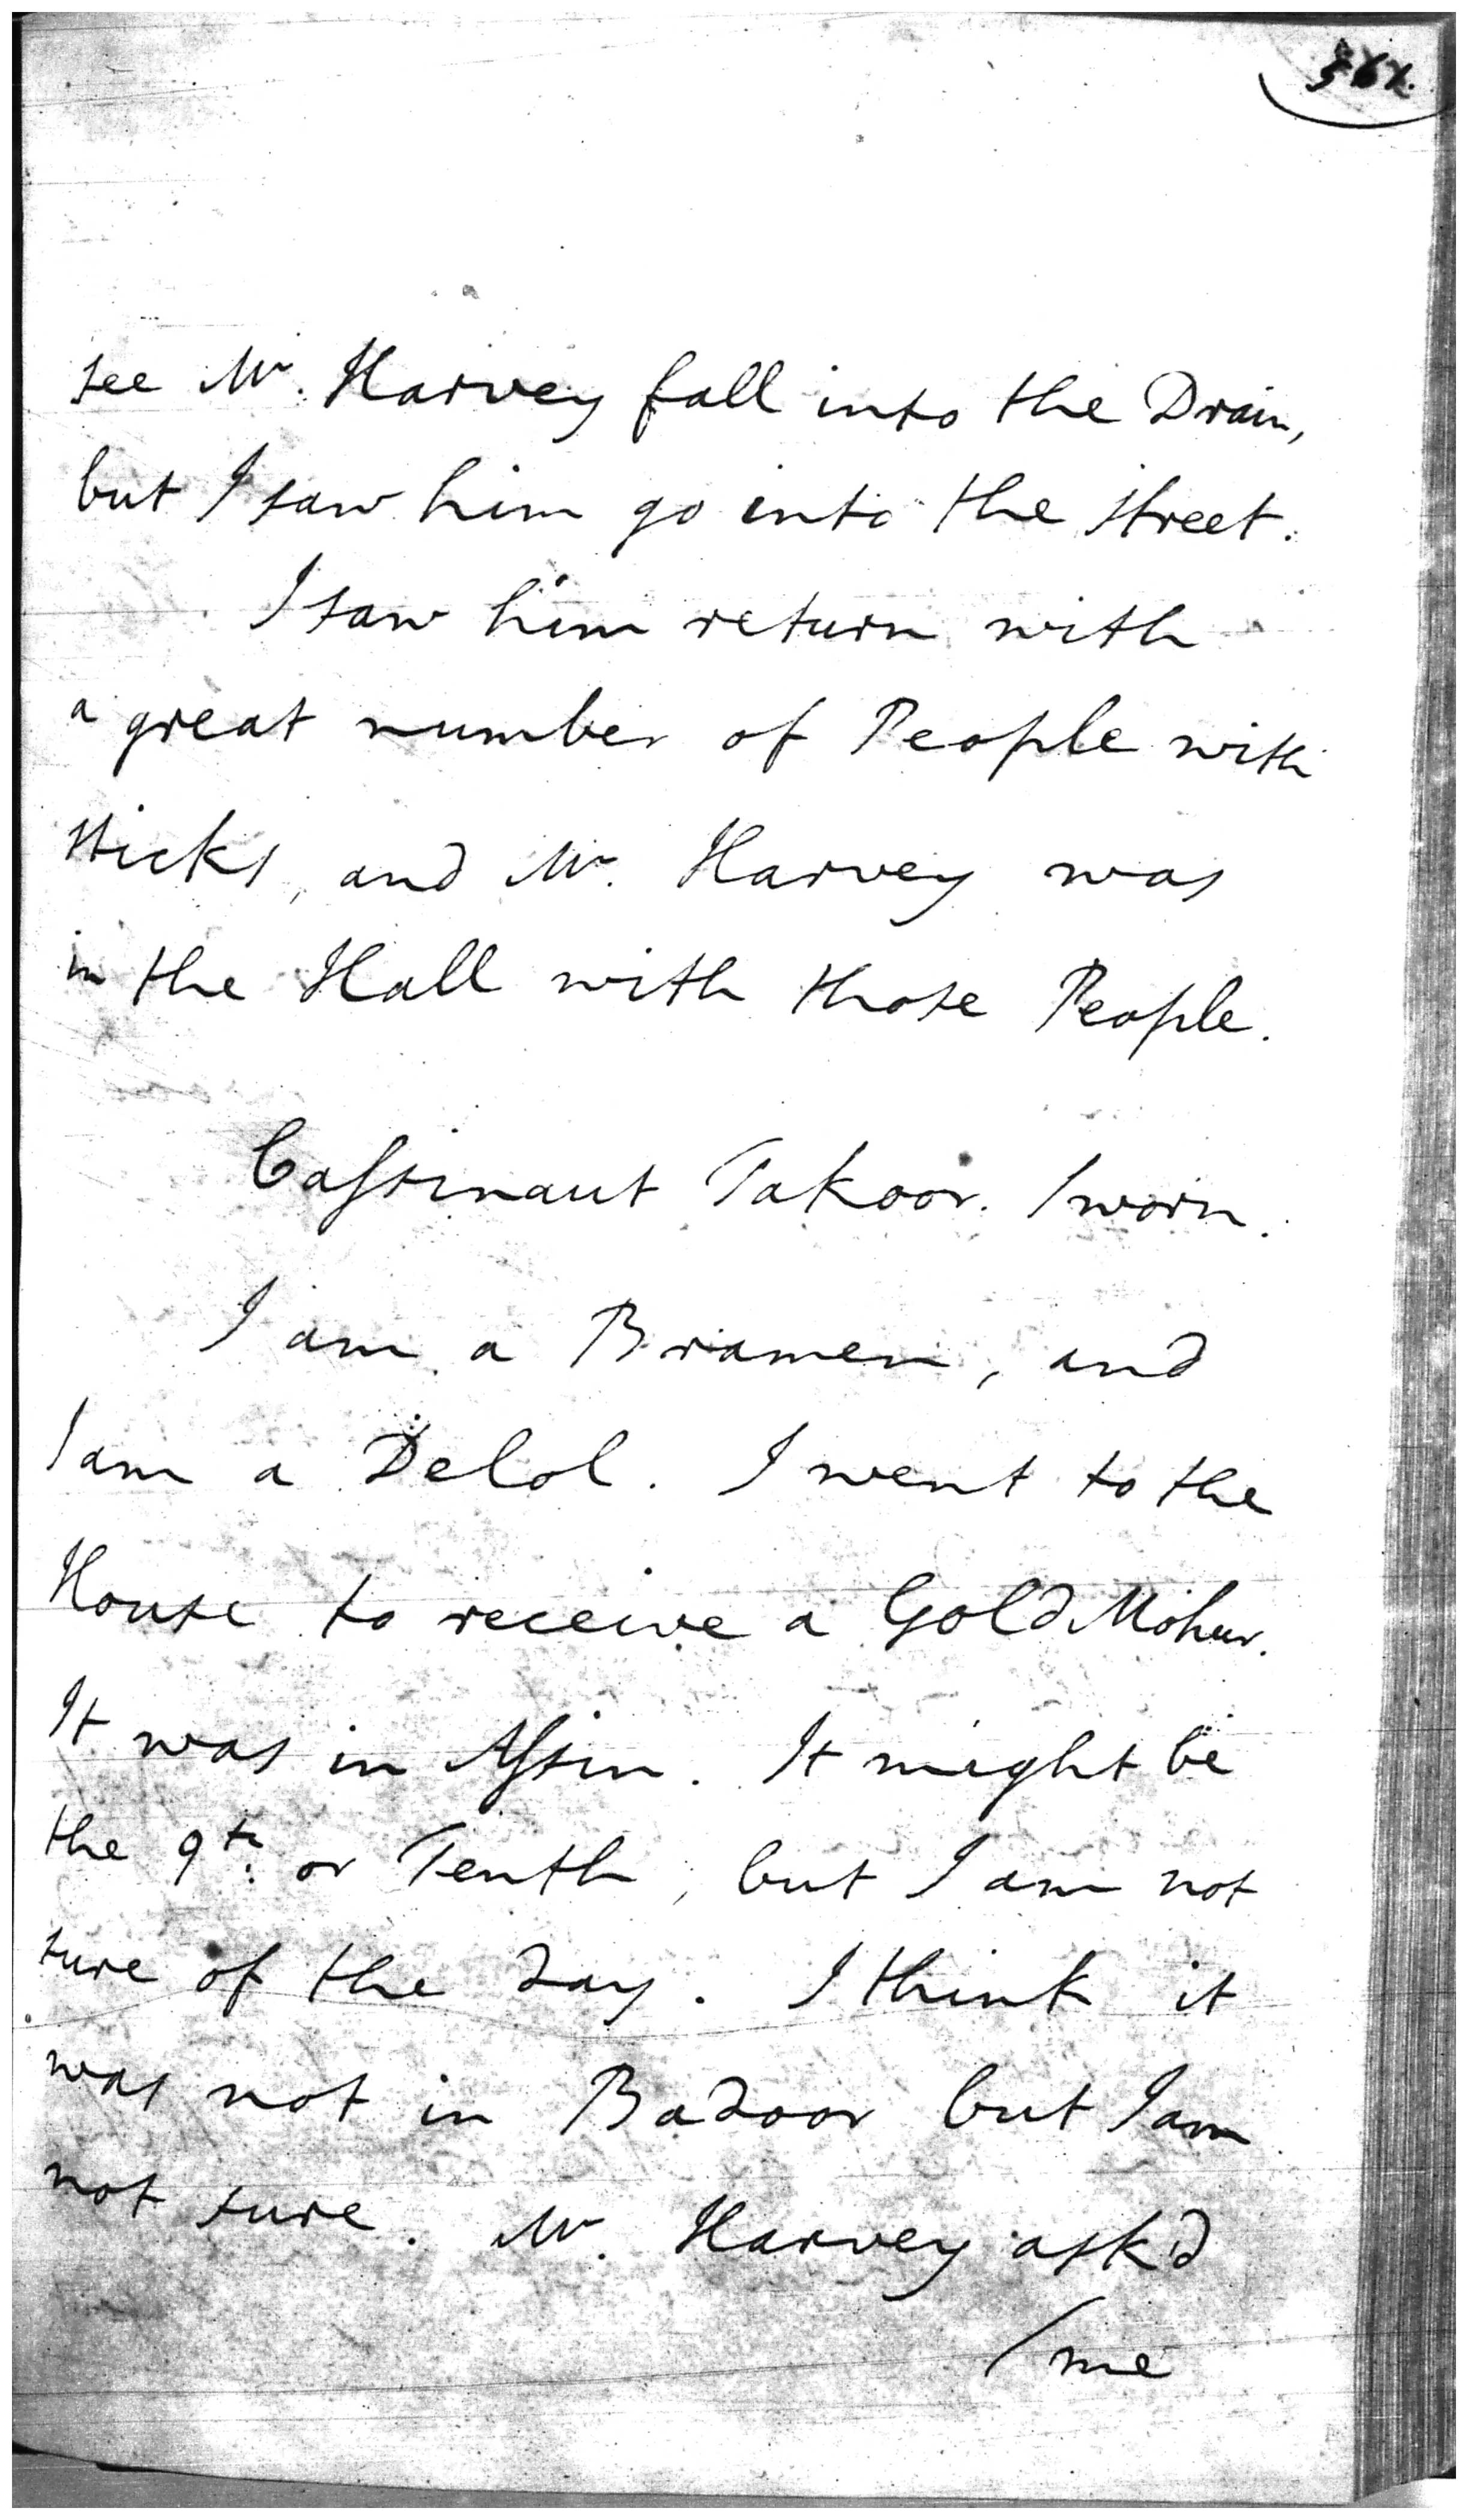 see Mr. Harvey fall into the Drain,
but I saw him go into the street.
I saw him return with
a great number of People with
sticks, and Mr. Harvey was
in the Hall with those People.
Cassinaut Takoor. Sworn.
I am a Bramen, and
I am a Delol. I went to the
House to receive a Gold Mohur.
It was in Assin. It might be
the 9th. or Tenth, but I am not
sure of the day. I think it
was not in Badoor but I am
not sure. Mr. Harvey ask'd
/me